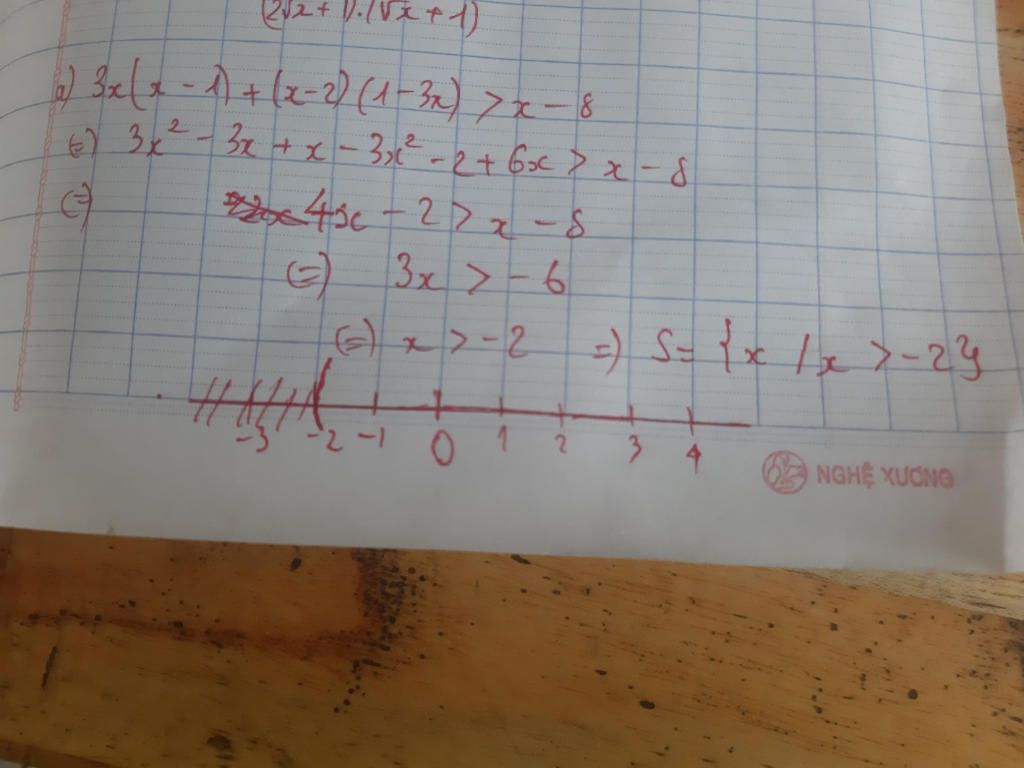 (2√x + 1).(√x + 1)
a) 3x(x - 1) + (x-2) (1-3x) > x - 8
(=) 3x² - 3x + x - 3x² - 2 + 6x > x - 8
(=) 4x - 2 > x - 8
(=) 3x > - 6
(=) x > -2 =) S= {x / x > -2}
-3 -2 -1 0 1 2 3 4
NGHỆ XƯƠNG